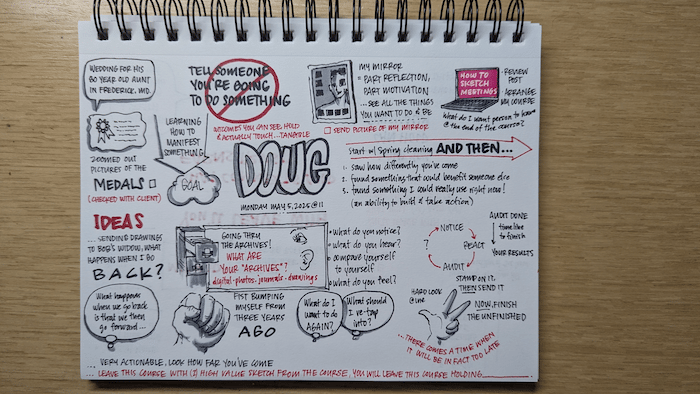 WEDDING FOR HIS
80 YEAR OLD AUNT
IN FREDERICK, MD.
ZOOMED OUT
PICTURES OF THE
MEDALS
(CHECKED WITH CLIENT)
LEARNING
HOW TO
MANIFEST
SOMETHING
GOAL
TELL SOMEONE
YOU'RE GOING
TO DO SOMETHING
OUTCOMES YOU CAN SEE, HOLD
& ACTUALLY TOUCH... TANGIBLE
MY MIRROR
= PART REFLECTION,
PART MOTIVATION
... SEE ALL THE THINGS
YOU WANT TO DO & BE
SEND PICTURE OF MY MIRROR
HOW TO
SKETCH
MEETINGS
- REVIEW
POST
- ARRANGE
MY COURSE
What do I want person to have
@ the end of the course?
DOUG
MONDAY MAY 5, 2025 @ 11
Start w/ Spring cleaning AND THEN...
1. saw how differently you've come
2. found something that could benefit someone else
3. found something I could really use right now!
(an ability to build & take action)
IDEAS
... SENDING DRAWINGS
TO BOB'S WIDOW, WHAT
HAPPENS WHEN I GO
BACK?
GOING THRU
THE ARCHIVES!
WHAT ARE
YOUR "ARCHIVES"?
digital · photos · journals · drawings
• what do you notice?
• what do you hear?
• compare yourself
to yourself
• what do you feel?
NOTICE
REACT
AUDIT
?
AUDIT DONE
time line
to finish
YOUR RESULTS
What happens
when we go back
is that we then
go forward...
FIST BUMPING
MYSELF FROM
THREE YEARS
AGO
What do I
want to do
AGAIN?
What should
I re-tap
into?
HARD LOOK
@
STAMP ON IT.
THEN SEND IT
NOW, FINISH
THE UNFINISHED
... THERE COMES A TIME WHEN
IT WILL BE IN FACT TOO LATE
... VERY ACTIONABLE, LOOK HOW FAR YOU'VE COME
... LEAVE THIS COURSE WITH (1) HIGH VALUE SKETCH FROM THE COURSE, YOU WILL LEAVE THIS COURSE HOLDING